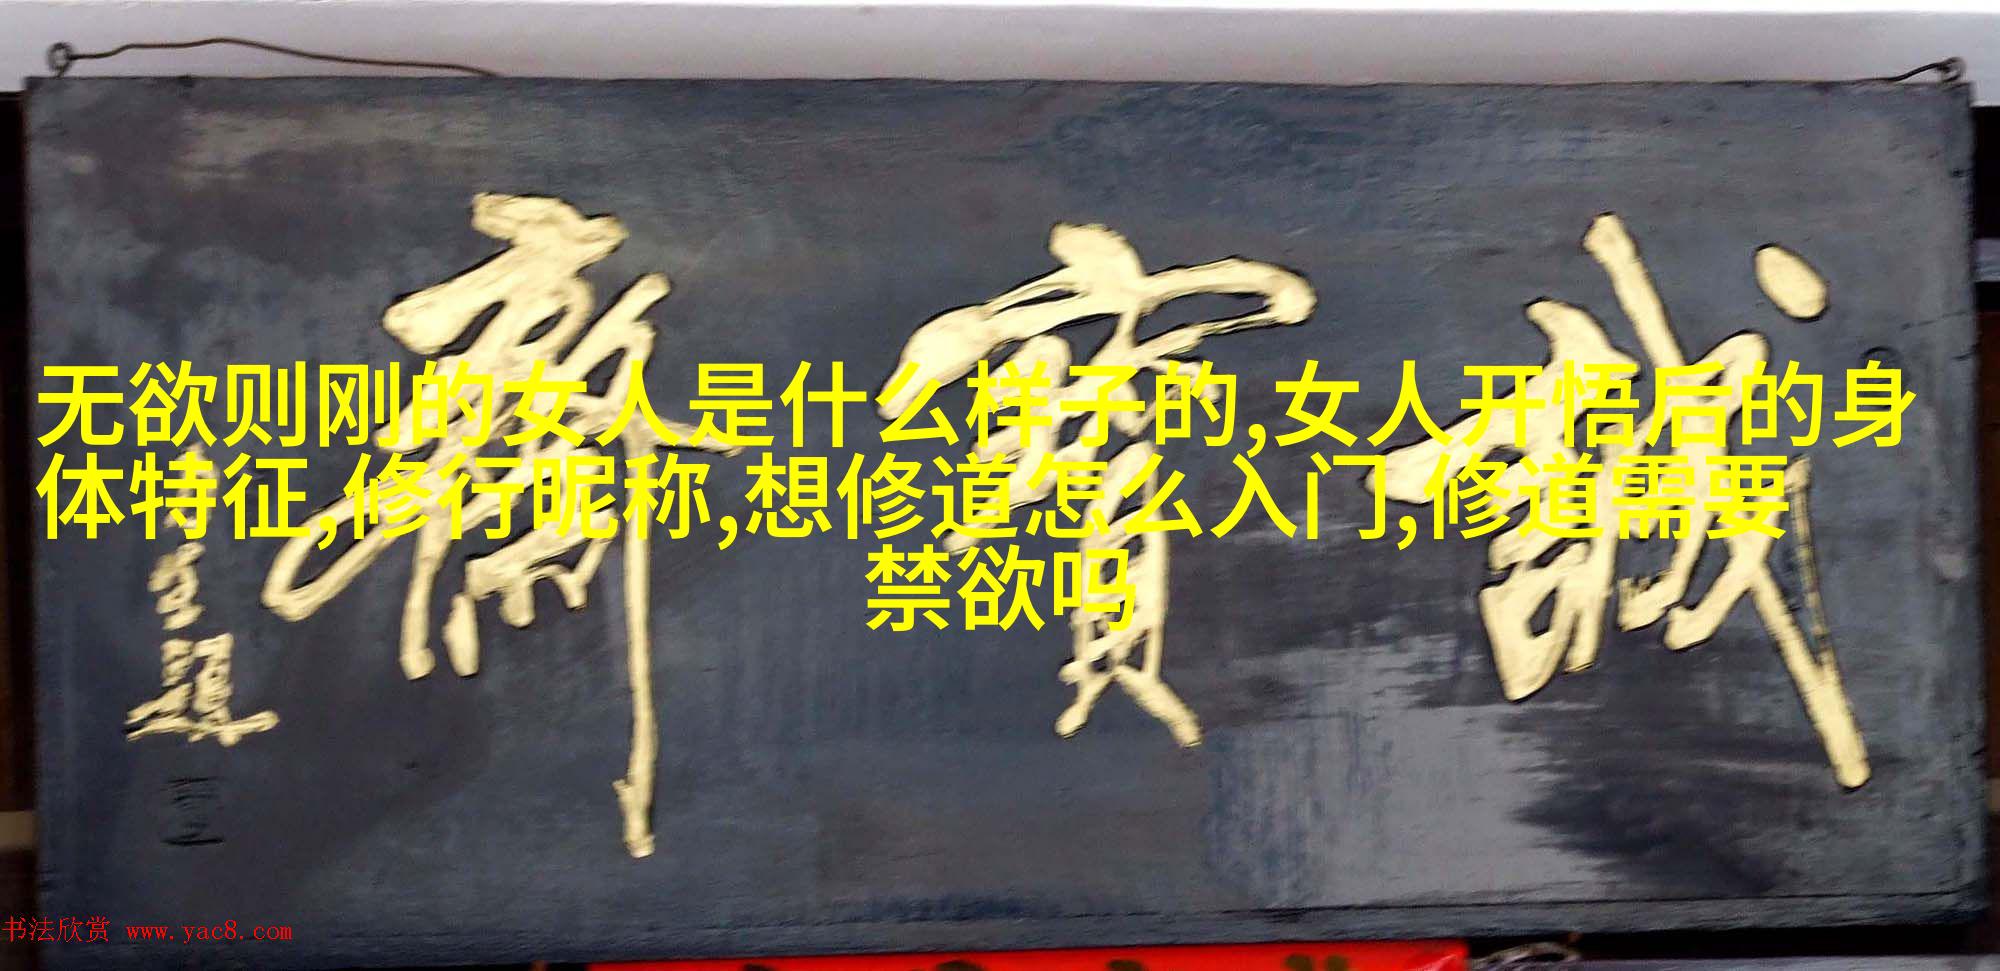 誠實齋
无欲则刚的女人是什么样子的,女人开悟后的身
体特征,修行昵称,想修道怎么入门,修道需要
禁欲吗
书法欣赏 www.yac8.com